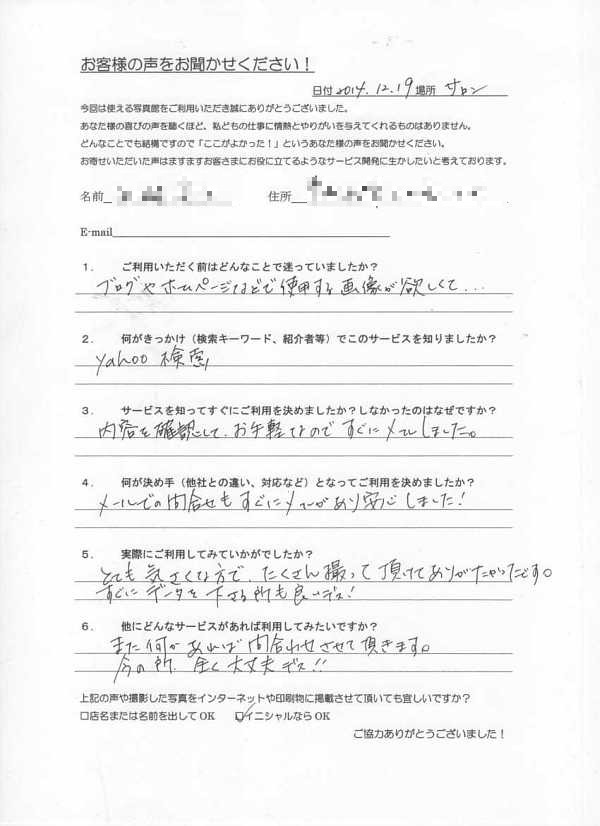 お客様の声をお聞かせください！
日付 2014.12.19 場所 サロン
今回は使える写真館をご利用いただき誠にありがとうございました。
あなた様の喜びの声を聴くほど、私どもの仕事に情熱とやりがいを与えてくれるものはありません。
どんなことでも結構ですので「ここがよかった！」というあなた様の声をお聞かせください。
お寄せいただいた声はますますお客さまにお役に立てるようなサービス開発に生かしたいと考えております。
名前 住所
E-mail
１． ご利用いただく前はどんなことで迷っていましたか？
ブログやホームページなどで使用する画像が欲しくて...
２． 何がきっかけ（検索キーワード、紹介者等）でこのサービスを知りましたか？
yahoo 検索
３． サービスを知ってすぐにご利用を決めましたか？しなかったのはなぜですか？
内容を確認して、お手軽なのですぐにメールしました。
４． 何が決め手（他社との違い、対応など）となってご利用を決めましたか？
メールでの問合せもすぐにメールがあり安心しました！
５． 実際にご利用してみていかがでしたか？
とても気さくな方で、たくさん撮って頂けてありがたかったです。
すぐにデータを下さる所も良いデス！
６． 他にどんなサービスがあれば利用してみたいですか？
また何かあれば問合わせさせて頂きます。
今の所、全く大丈夫デス！！
上記の声や撮影した写真をインターネットや印刷物に掲載させて頂いても宜しいですか？
□店名または名前を出してOK ☑イニシャルならOK
ご協力ありがとうございました！